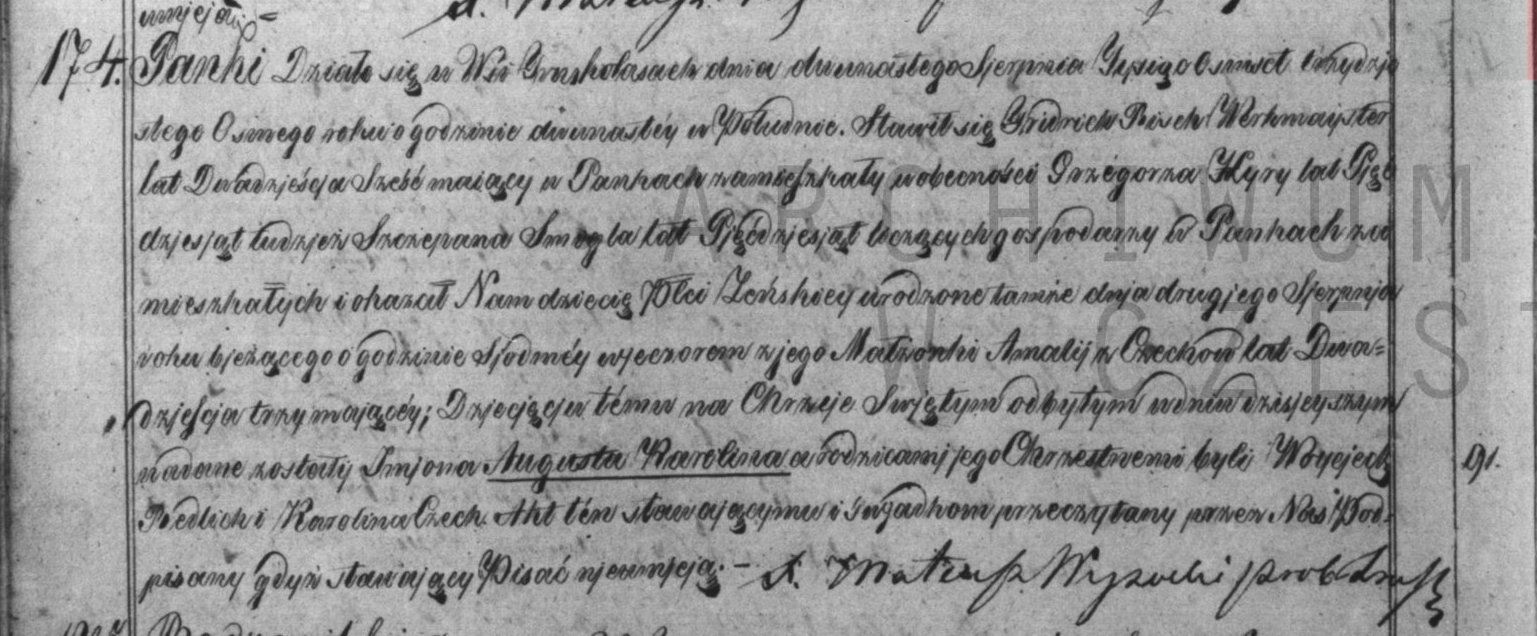 umieją =
174. Panki Działo się w Wsi Truskolasach dnia dwunastego Sjerpnia Tysiąc Osmset trzydzie
stego Osmego roku o godzinie dwunastéy w Południe. Stawił się Fridrich Werkmayster
lat Dwadzieścja Sześć maiący w Pankach zamieszkały w obecności Grzegorza Kyry lat Pięć
dziesjąt tudzież Szczepana Smogla lat Pjęćdziesjąt liczących gospodarzy w Pankach za
mieszkałych i okazał Nam dziecię Płci Zeńskiey urodzone tamże dnja drugjego Sjerpnja
roku bjeżącego o godzinie Sjodméy wjeczorem z jego Małżonki Amalij z Czechow lat Dwa=
dzjeścja trzy mającéy; Dzjecjęcju temu na Chrzcje Swjętym odbytym w dniu dzisjeyszym
nadane zostały Imjona Augusta Karolina a rodzicamj jego Chrzestnemi byli Woyciech
Redlich i Karolina Czech. Akt tén stawającymu i Swjadkom przeczytany przez Nas Pod=
pisany gdyż stawający Pisać njeumieją. – X. Mateusz Wysocki prob. Trusk
91.
ARCHIWUM
W CZĘST